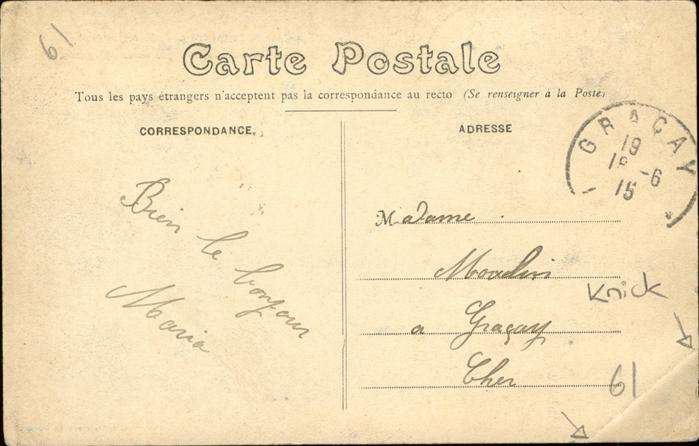 61
Carte Postale
Tous les pays étrangers n'acceptent pas la correspondance au recto (Se renseigner à la Poste)
CORRESPONDANCE.
ADRESSE
GRAÇAY
19
18 -6
15
Bien le bonjour
Maria
Madame
Moulin
a Graçay
Cher
Knick
61